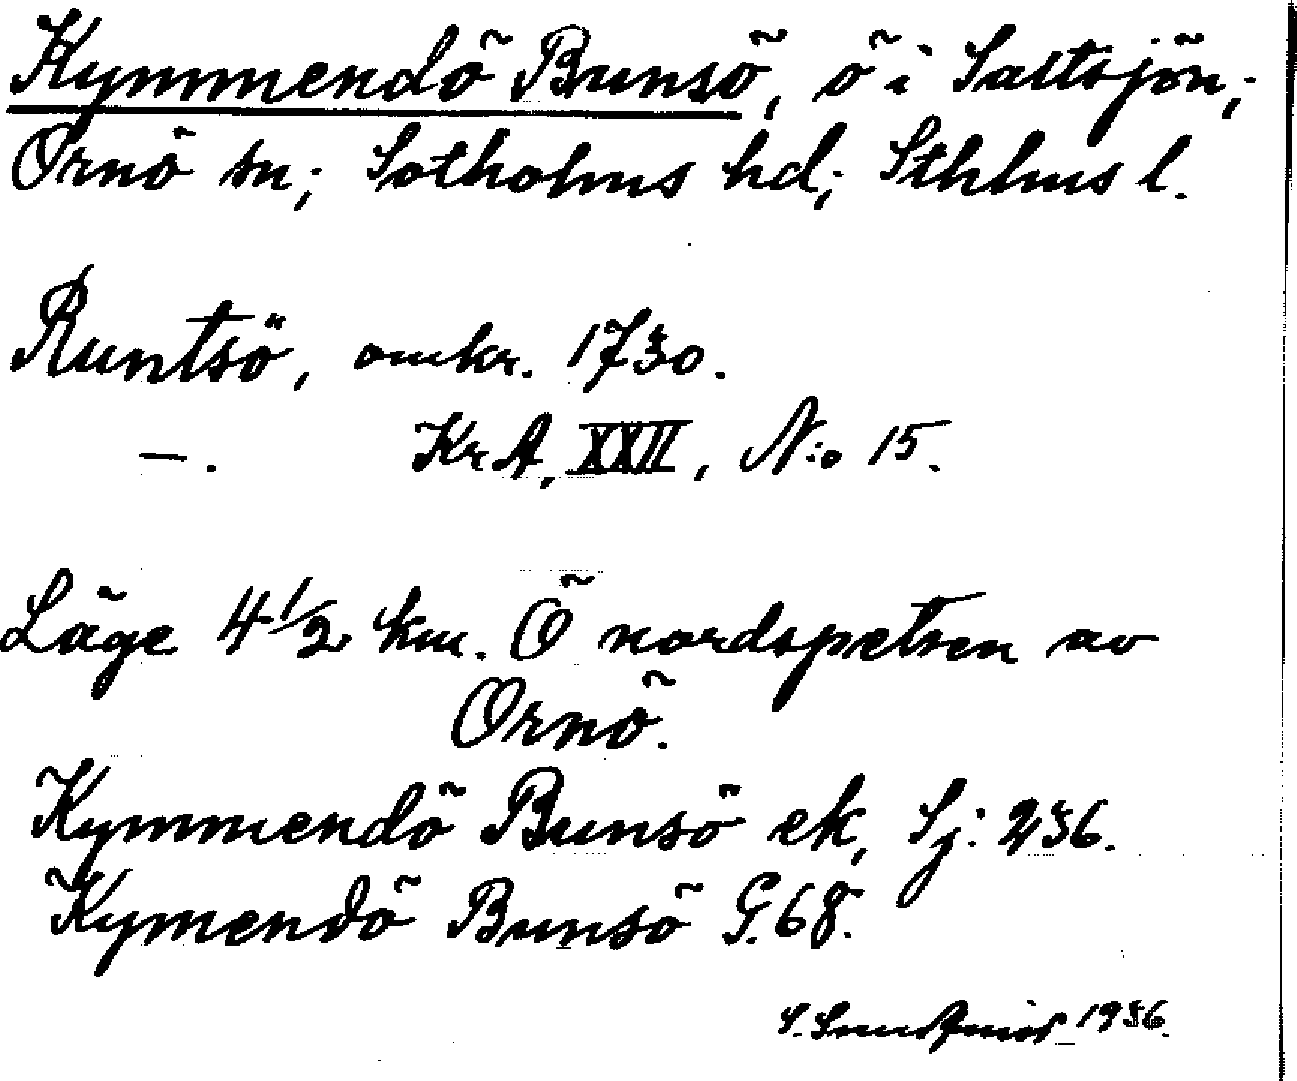 Kymmendö Bunsö, ö i Saltsjön,;
Ornö sn; Sotholms hd; Sthlms l.
Runtsö, omkr. 1730.
—. Kr. A, XXII, N:o 15.
Läge 4 1/2 km. Ö nordspetsen av
Ornö.
Kymmendö Bunsö ek, Sj: 236.
Kymendö Bunsö G. 68.
S. 1936.